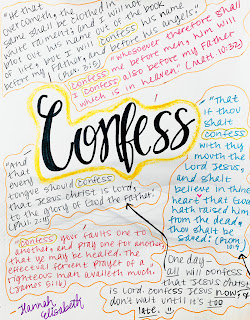 "He that
overcometh, the
same shall be clothed in
white raiment; and I will not
blot out his name out of the book
of life, but I will confess his name
before my Father, and before his angels."
(Rev. 3:5)
"Whosoever therefore shall
confess me before men, him will
I confess also before my Father
which is in heaven." (Matt. 10:32)
Confess
"That
if thou
shalt
confess
with thy
mouth the
Lord Jesus,
and shalt
believe in thine
heart that God
hath raised him
from the dead,
thou shalt be
saved." (Rom. 10:9)
"And
that every
tongue should confess
that Jesus Christ is Lord,
to the glory of God the Father."
(Phil. 2:11)
"Confess your faults one to
another, and pray one for another,
that ye may be healed. The
effectual fervent prayer of a
righteous man availeth much."
(James 5:16)
One day—
all will confess
that Jesus Christ
is Lord. Confess Jesus now;
don't wait until it's too
late. !!
Hannah
Elisabeth